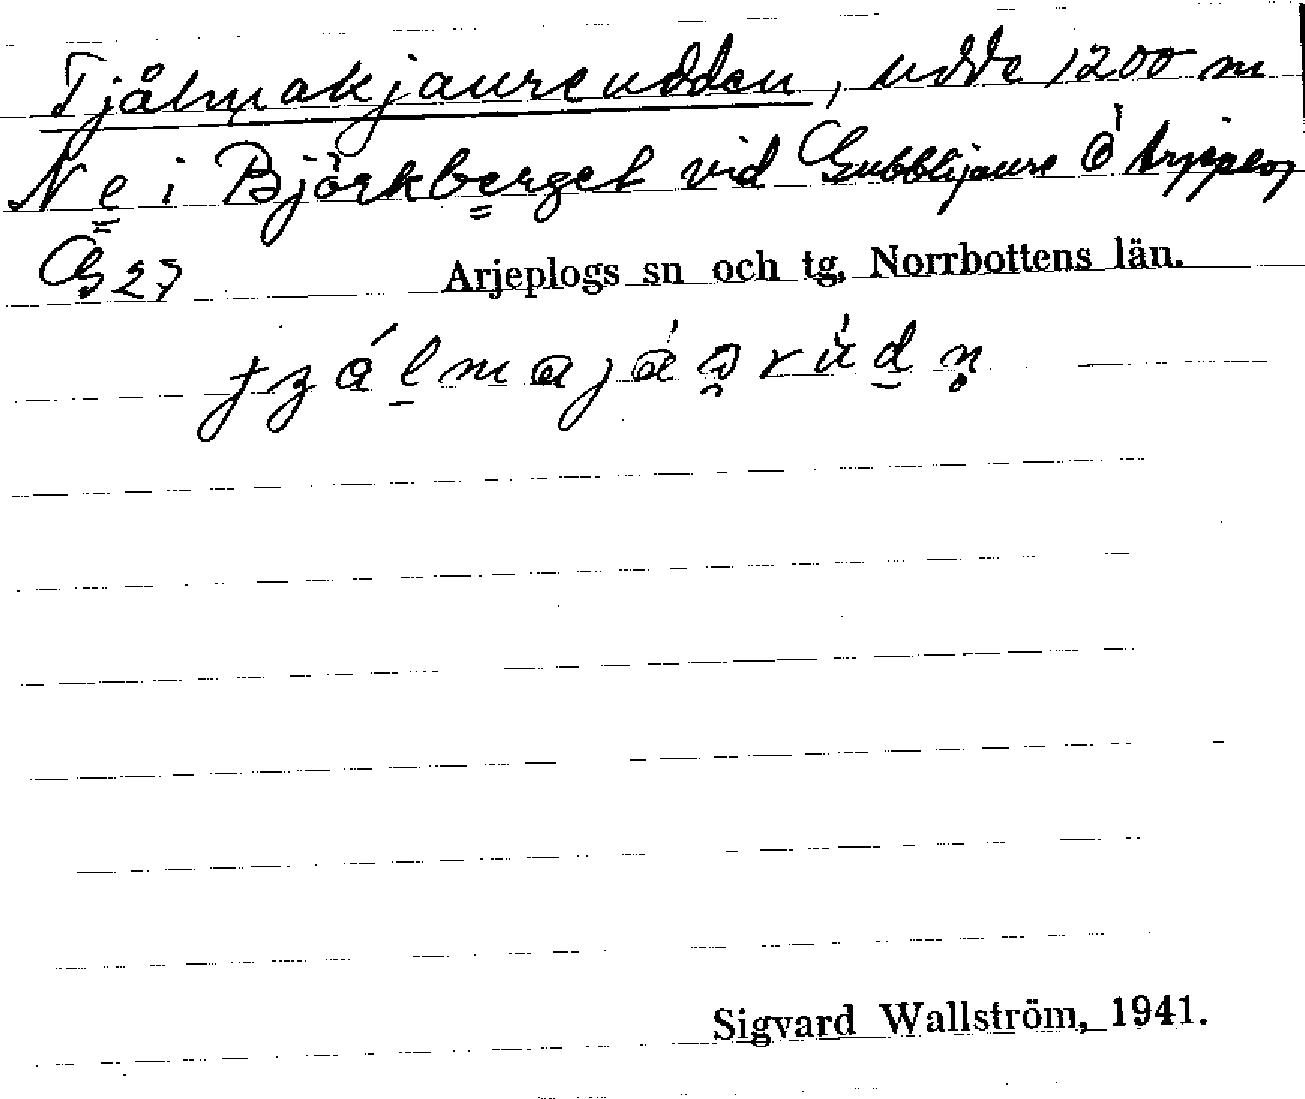 Tjålmakjaureudden, udde 1200 m
N e i Björkberget vid Gubblijaure Ö Arjeplog
G 27 Arjeplogs sn och tg, Norrbottens län.
Sigvard Wallström, 1941.